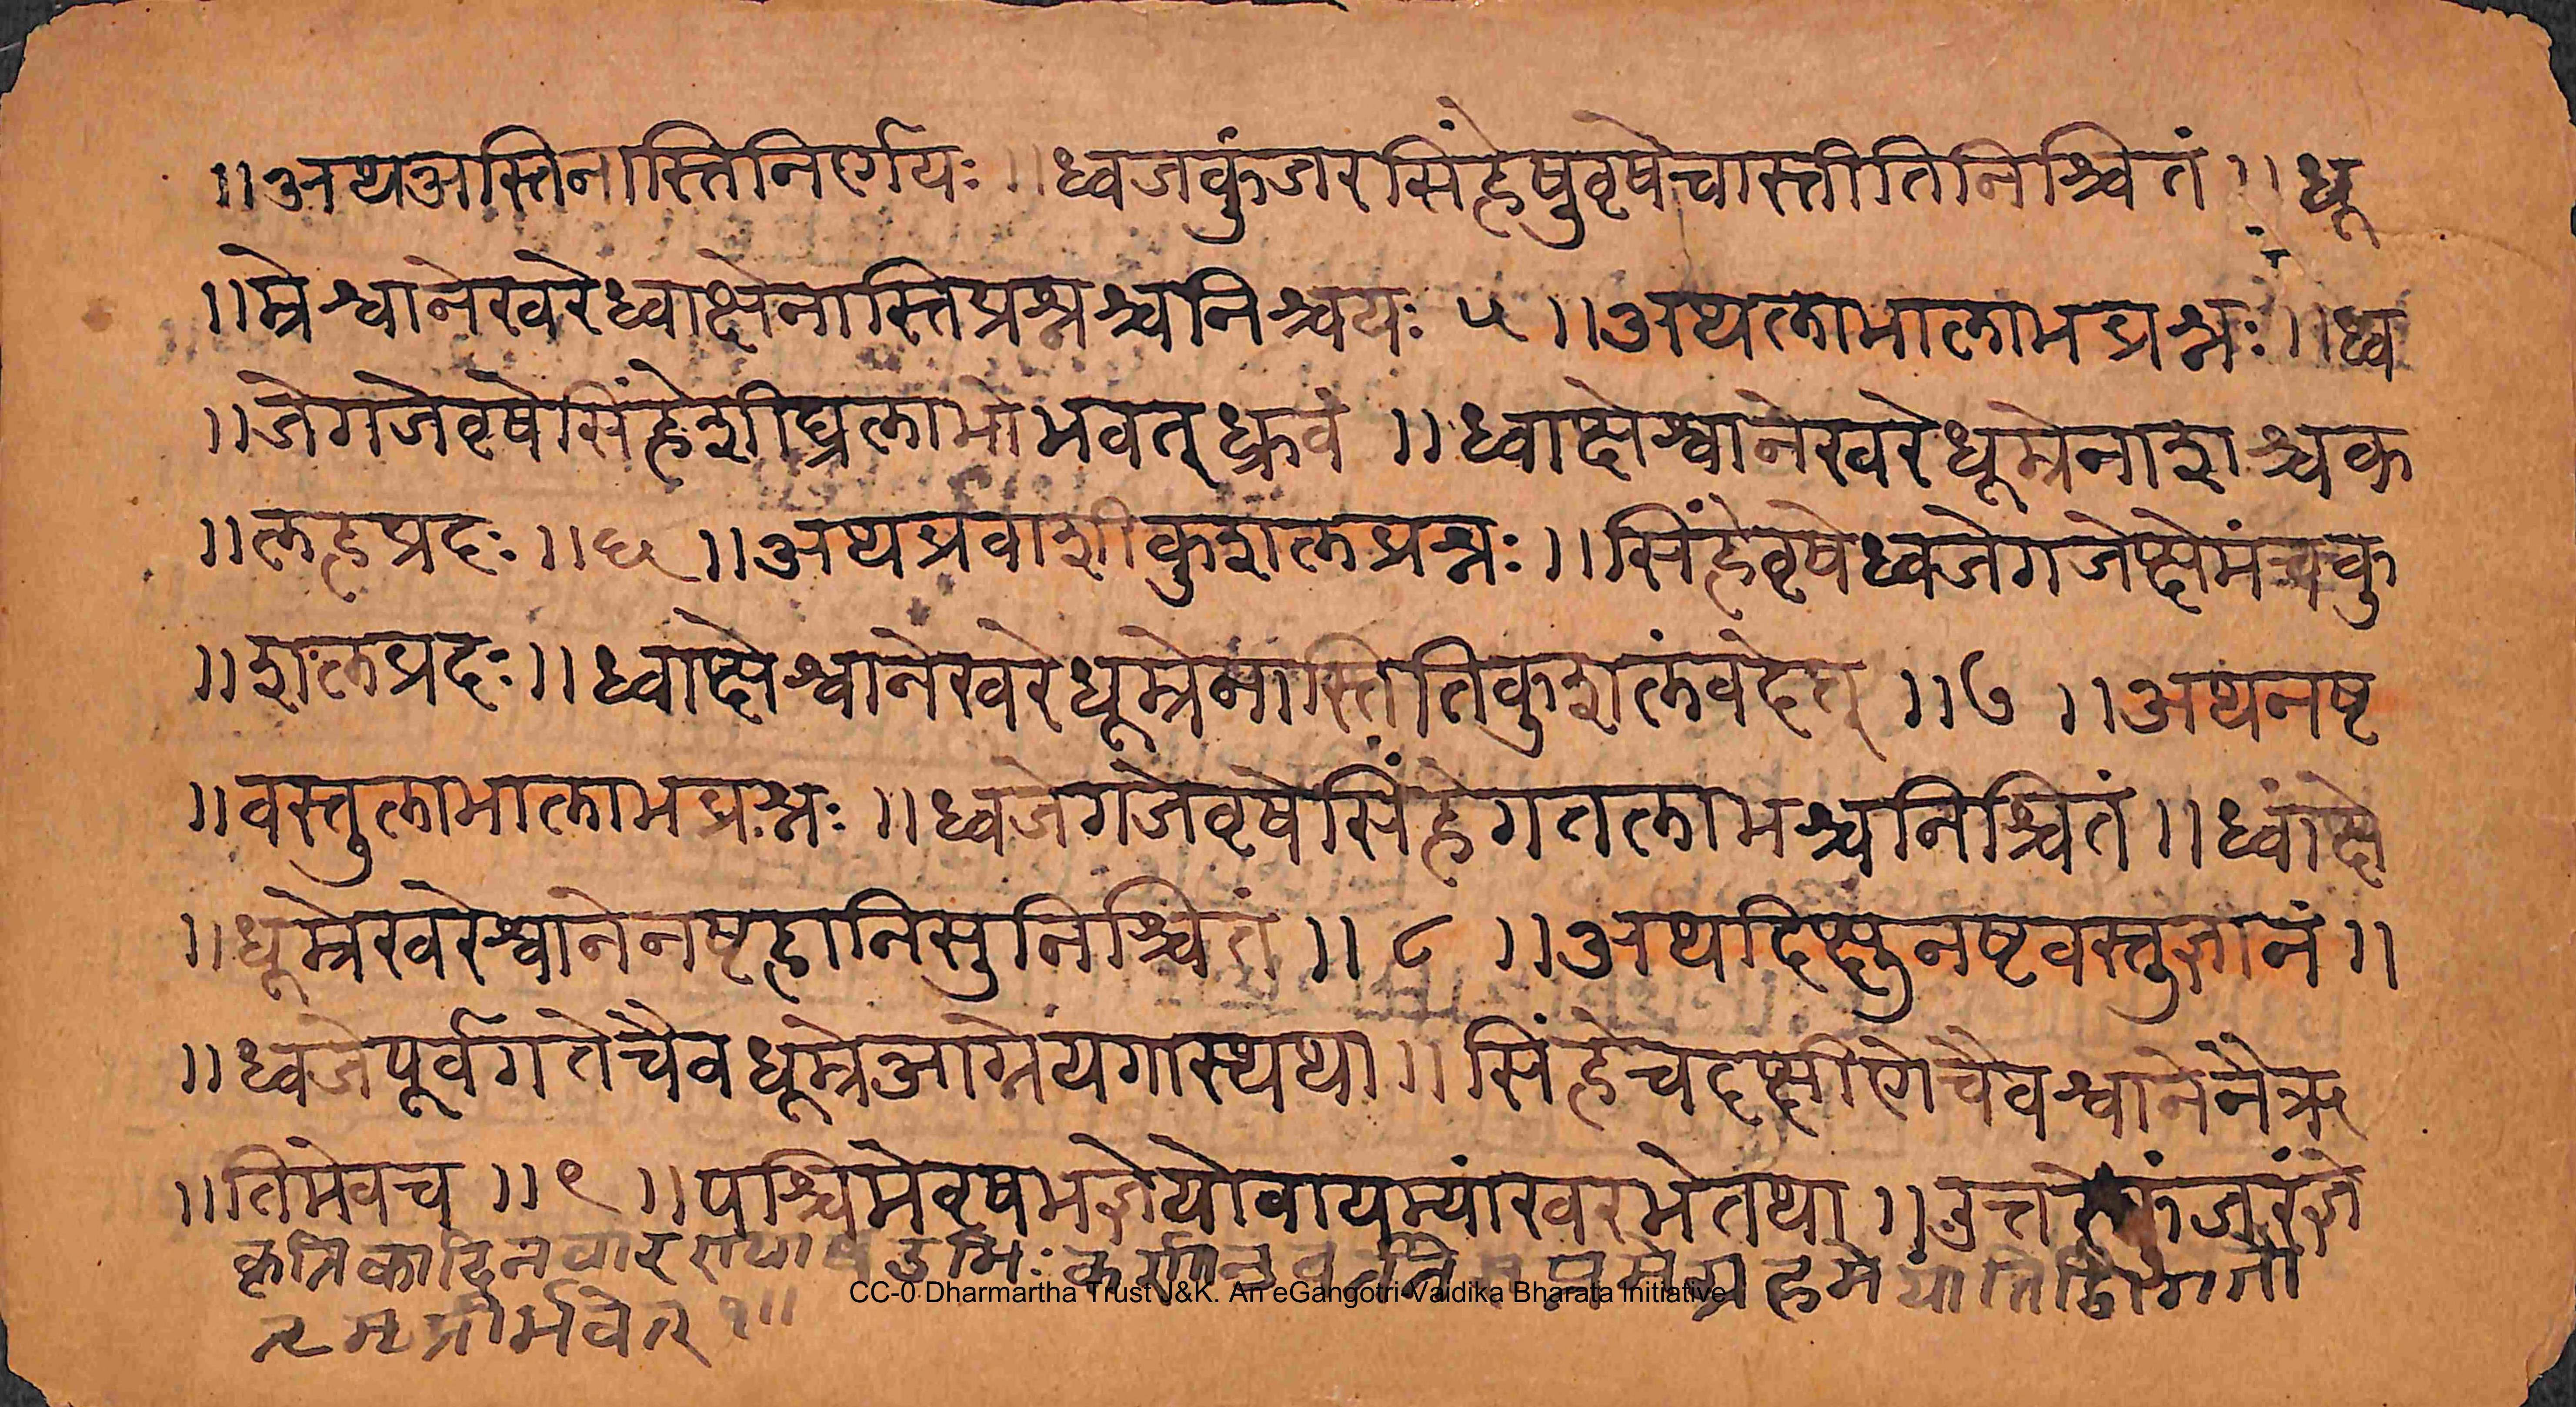 ॥अथअस्तिनास्तिनिर्णयः ॥ध्वजकुंजरसिंहेषुवृषेचास्तीतिनिश्चितं ॥ धू
॥म्रेश्वानेखरेध्वाक्षेनास्तिप्रश्नश्चनिश्चयः ५ ॥अथलाभालाभप्रश्नः ॥ध्व
॥जेगजेवृषेसिंहेशीघ्रलाभोभवत्ध्रुवं ॥ध्वाक्षेश्वानेखरेधूम्रेनाशश्चक
॥लहप्रदः ॥६ ॥अथप्रवाशीकुशलप्रश्नः ॥सिंहेवृषेध्वजेगजेक्षेमंचकु
॥शलप्रदः ॥ध्वाक्षेश्वानेखरेधूम्रेनास्तितिकुशलंवदेत् ॥७ ॥अथनष्ट
॥वस्तुलाभालाभप्रश्नः ॥ध्वजेगजेवृषेसिंहेगतलाभश्चनिश्चितं ॥ध्वांक्षे
॥धूम्रेखरेश्वानेनष्टहानिसुनिश्चितं ॥ ८ ॥अथदिक्षुनष्टवस्तुज्ञानं ॥
॥ध्वजेपूर्वगतेचैवधूम्रेआग्नेयगास्थथा ॥सिंहेचदक्षीणेचैवश्वानेनैऋ
॥तिमेवच ॥९ ॥पश्चिमेवृषभज्ञेयोवायम्यांखरभेतथा ॥उत्तरेकुंजरंज्ञे
कृत्रिकादिन
CC-0 Dharmartha Trust J&K. An eGangotri-Vaidika Bharata Initiative